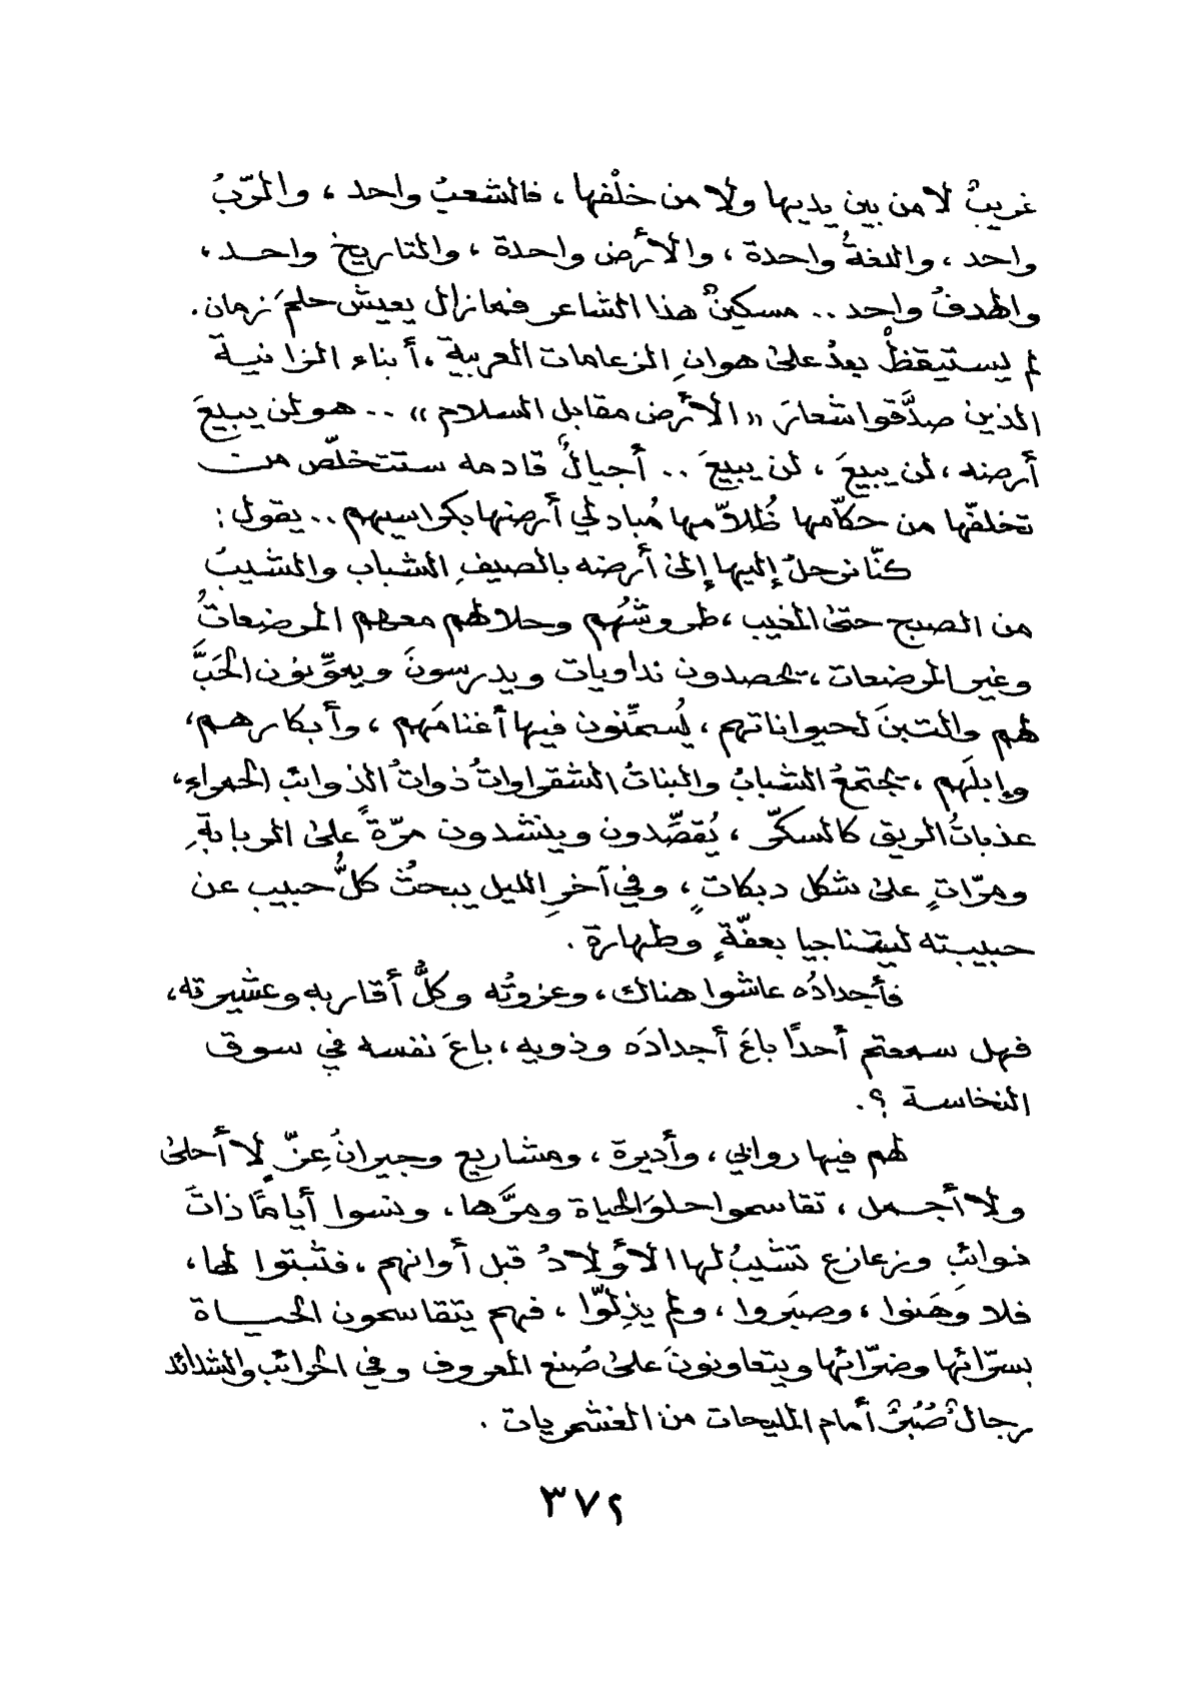 غريبٌ لا من بين يديها ولا من خلْفها، فالشعبُ واحد، والرّبُ
واحد، واللغةُ واحدة، والأرض واحدة، والتاريخ واحد،
والهدفُ واحد .. مسكينٌ هذا الشاعر فما زال يعيش حلمَ زمان.
لم يستيقظْ بعدُ على هوانِ الزعامات العربية، أبناء الزانية
الذين صدَّقوا شعارَ «الأرض مقابل السلام» .. هو لن يبيعَ
أرضه، لن يبيعَ، لن يبيعَ .. أجيالٌ قادمه ستتخلّص من
تخلفّها من حكاّمها ظُلاّمها مُبادلي أرضها بكراسيهم .. يقول:
كنّا نرحلُ إليها إلى أرضه بالصيفِ الشباب والشيبُ
من الصبح حتى المغيب، طروشُهم وحلالهم معهم المرضعاتُ
وغير المرضعات، يحصدون نداويات ويدرسونَ ويعوِّنون الحَبَّ
لهم والتبنَ لحيواناتهم، يُسمِّنون فيها أغنامَهم، وأبكارهم،
وإبلَهم، يجتمعُ الشبابُ والبناتُ الشقراواتُ ذواتُ الذوائب الحمراء،
عذباتُ الريق كالسكّر، يُقصِّدون وينشدون مرّةً على الربابةِ
ومرّاتٍ على شكل دبكاتٍ، وفي آخرِ الليل يبحثُ كلُّ حبيب عن
حبيبته ليتناجيا بعفّةٍ وطهارة.
فأجدادُه عاشوا هناك، وعزوتُه وكلُّ أقاربه وعشيرته،
فهل سمعتم أحدًا باعَ أجدادَه وذويه، باعَ نفسه في سوق
النخاسة ؟.
لهم فيها روابي، وأديرة، ومشاريع وجيرانُ عِزٍّ لا أحلى
ولا أجمل، تقاسموا حلوَ الحياة ومرَّها، ونسوا أيامًا ذاتَ
نوائبِ وزعازع تشيبُ لها الأولادُ قبل أوانهم، فثبتوا لها،
فلا وَهَنوا، وصبَروا، ولم يذِلّوا، فهم يتقاسمون الحياة
بسرّائها وضرّائها ويتعاونونَ على صُنع المعروف وفي الحرائب والشدائد
رجالٌ صُبُرٌ أمام المليحات من الغشمريات.
٣٧٢